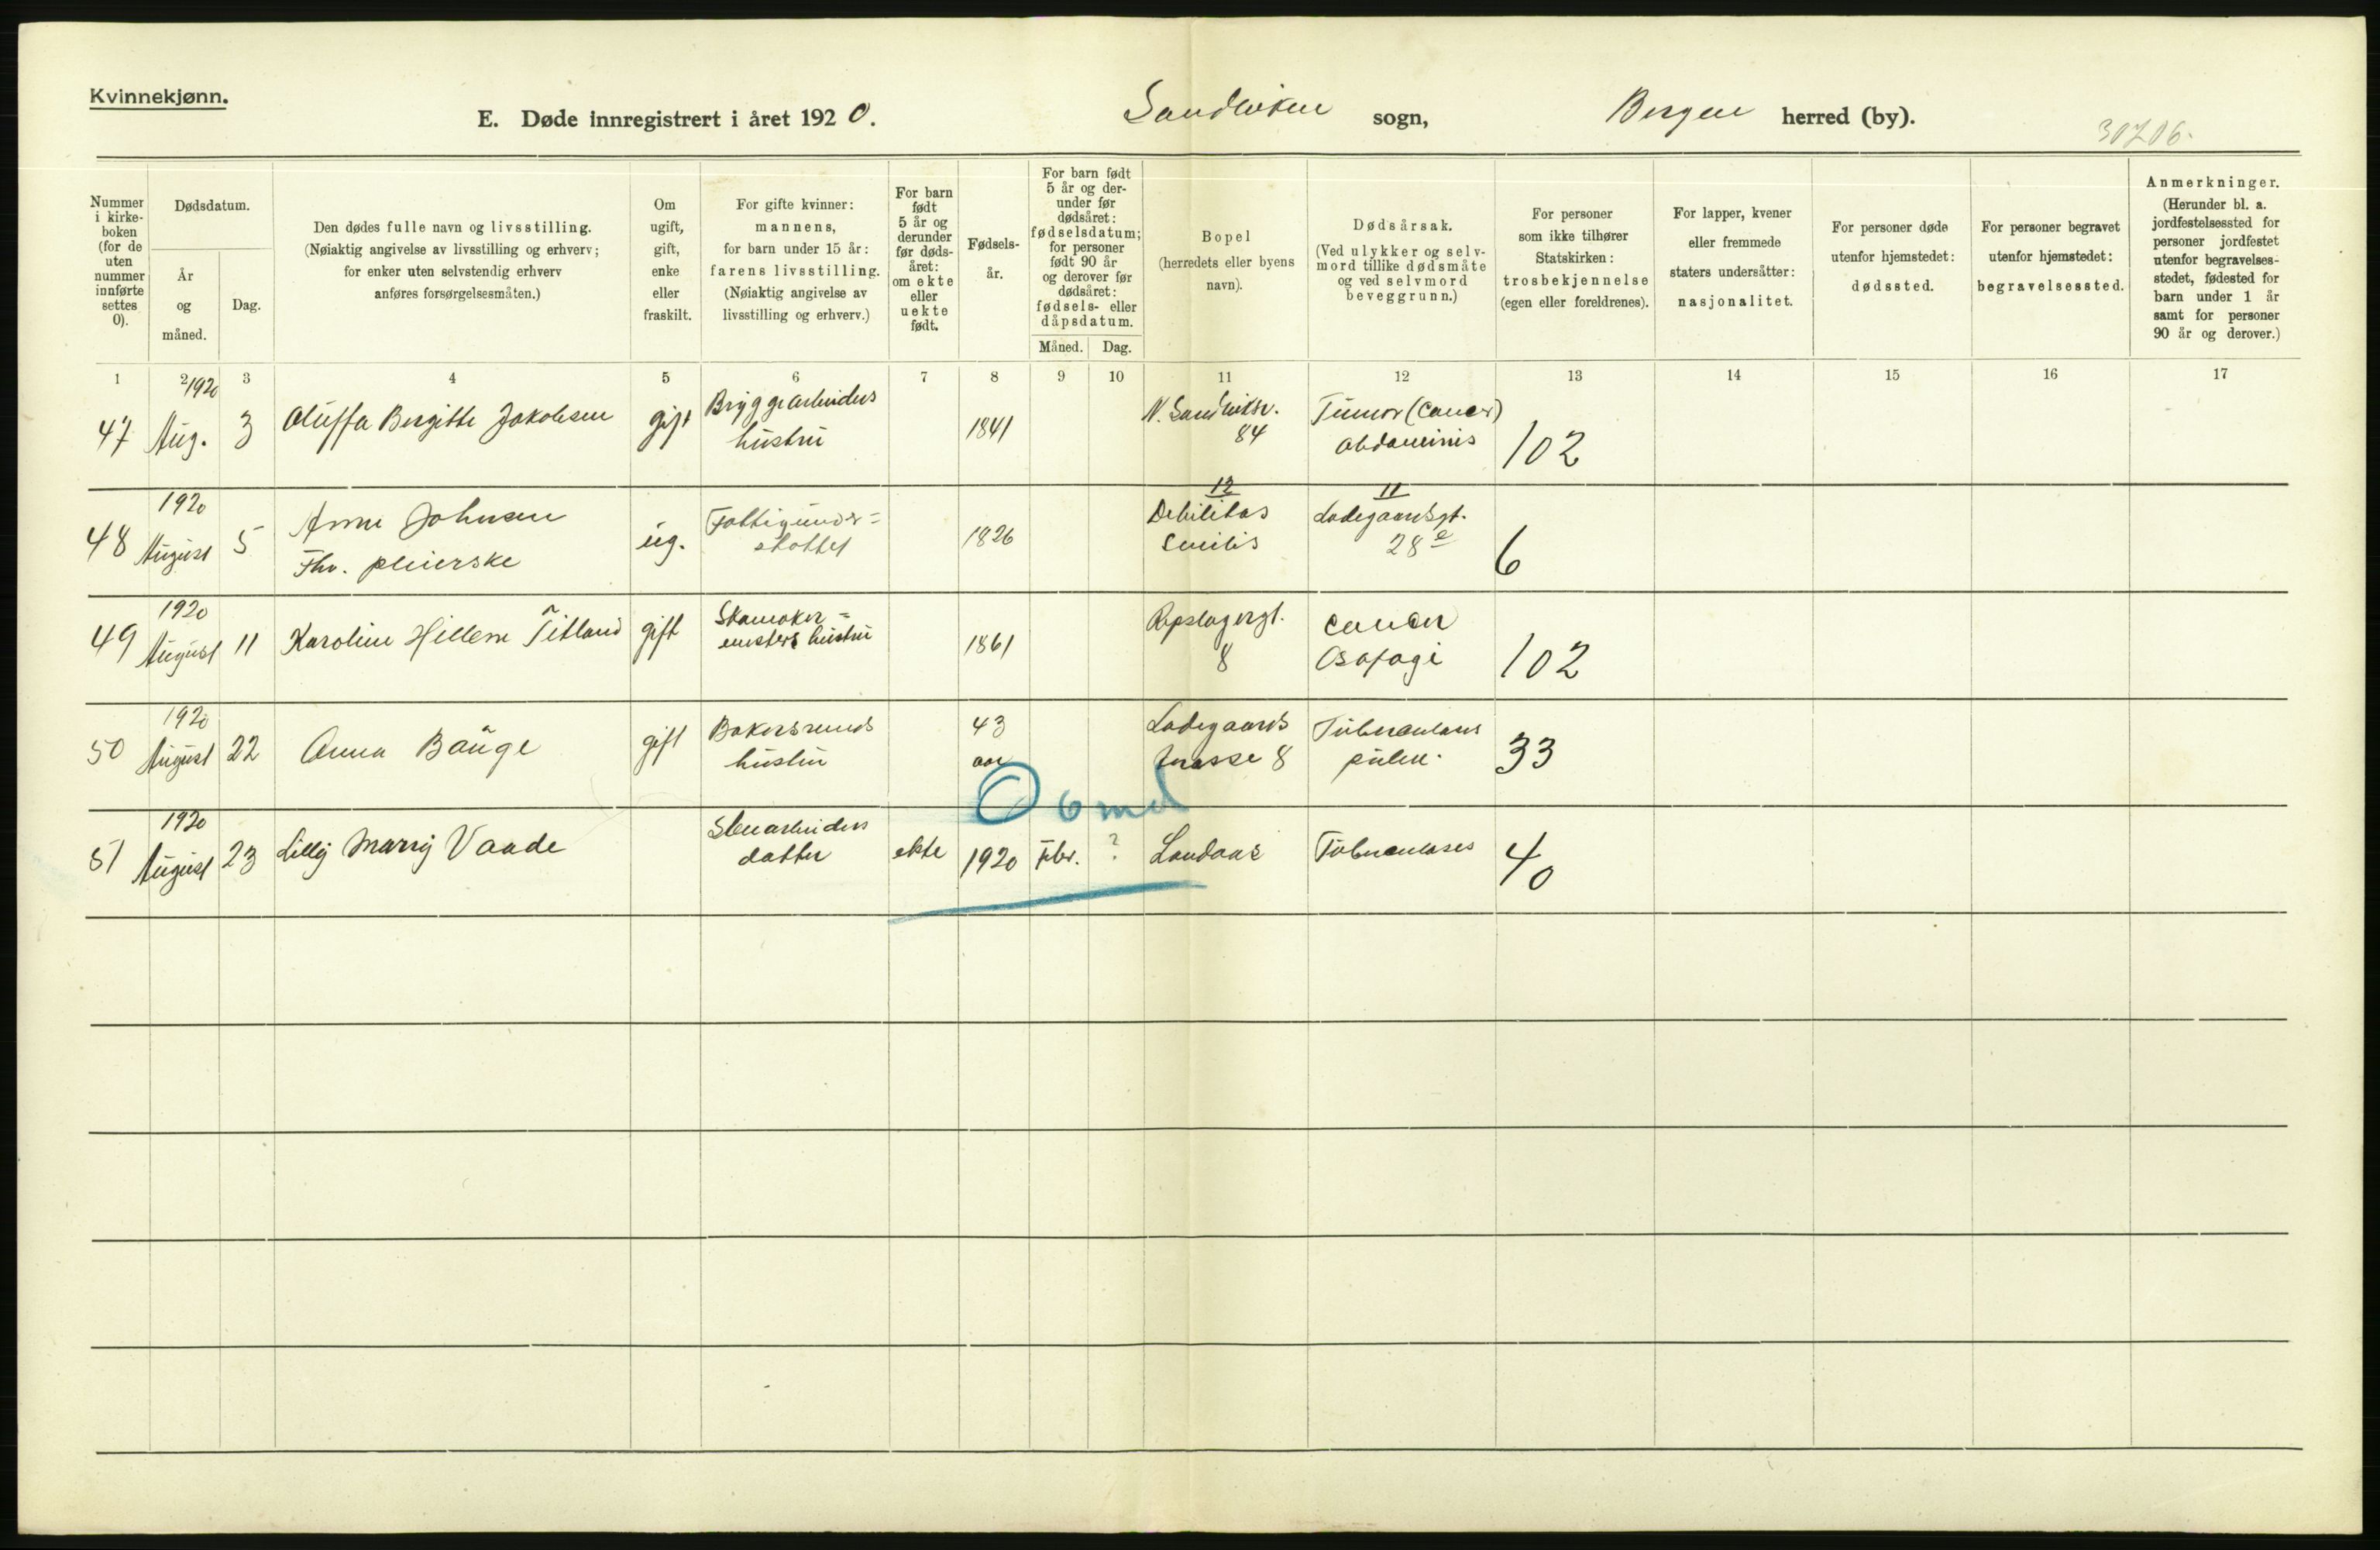 Kvinnekjønn.
E. Døde innregistrert i året 1920. Sandviken sogn, Bergen herred (by).
30706.
Nummer i kirke- boken (for de uten nummer innførte settes 0).
Dødsdatum.
År og måned.
Dag.
Den dødes fulle navn og livsstilling.
(Nøiaktig angivelse av livsstilling og erhverv;
for enker uten selvstendig erhverv
anføres forsørgelsesmåten.)
Om ugift, gift, enke eller fraskilt.
For gifte kvinner:
mannens,
for barn under 15 år:
farens livsstilling.
(Nøiaktig angivelse av
livsstilling og erhverv.)
For barn født 5 år og derunder før døds- året: om ekte eller uekte født.
Fødsels- år.
For barn født 5 år og der- under før dødsåret: fødselsdatum; for personer født 90 år og derover før dødsåret: fødsels- eller dåpsdatum.
Måned. Dag.
Bopel
(herredets eller byens
navn).
Dødsårsak.
(Ved ulykker og selv-
mord tillike dødsmåte
og ved selvmord
beveggrunn.)
For personer
som ikke tilhører
Statskirken:
trosbekjennelse
(egen eller foreldrenes).
For lapper, kvener
eller fremmede
staters undersåtter:
nasjonalitet.
For personer døde
utenfor hjemstedet:
dødssted.
For personer begravet
utenfor hjemstedet:
begravelsessted.
Anmerkninger.
(Herunder bl. a.
jordfestelsessted for
personer jordfestet
utenfor begravelses-
stedet, fødested for
barn under 1 år
samt for personer
90 år og derover.)
1 2 3 4 5 6 7 8 9 10 11 12 13 14 15 16 17
1920
47 Aug. 3 Oluffa Bergitte Jakobsen gift Bryggearbeiders hustru 1841 N. Sandviksv. 84 Tumor (Cancer) abdominis 102
1920 12 11
48 August 5 Anne Johnsen Fhv. pleierske ug. Fattigunder= støttet 1826 Debilitas senilis Ladegaardsgt. 28 e 6
1920
49 August 11 Karoline Hillem Titland gift Skomaker= mesters hustru 1861 Repslagergt. 8 Cancer Osofagi 102
1920
50 August 22 Anna Bauge gift Bakersvends hustru 43 aar Ladegaards terasse 8 Tuberculous pulm. 33
0 6 md
1920
51 August 23 Lilly Marry Vaade Stenarbeiders datter ekte 1920 Febr. ? Landaas Tuberculoses 40